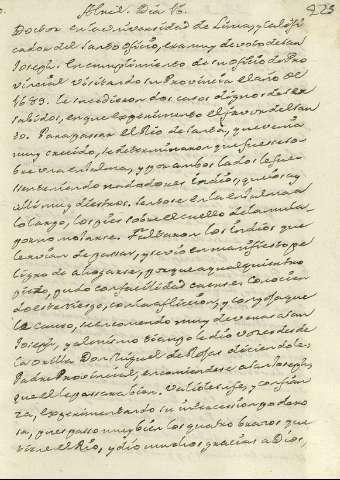 Abril. Dia 16. 223
Doctor en la Universidad de Lima, y Calif
cador del Santo Oficio, era muy devoto de San
Joseph. En cumplimiento de su oficio de Pro
vincial visitando su Provincia el año de
1689. le sucedieron dos casos dignos de ser
sabidos, en que experimento el favor del San
to. Para passar el Rio de Santa, que venia
muy crecido, se determinaron que fuesse so
bre una enxalma, y por ambos lados le fue
ssen nadadores Indios, que los ay
alli muy diestros. Sentose en la enxalma a
lo largo, los pies sobre el cuello de la mula
por no mojarse. los Indios que
le avian de passar, y se vio en manifiesto pe
ligro de ahogarse, porque a qualquier
que con facilidad caerse. Conocien
do este riesgo, con la afliccion, y congoja que
le causo, se encomendo muy de veras a San
Joseph, y al mismo tiempo le dio voces desde
la orilla Don Miguel de Rojas diciendole:
Padre Provincial, encomiendese a San Joseph,
que el le passara bien. Valiose, y confian
za, experimentando su intercession podero
sa, pues passo muy bien los quatro brazos que
tiene el Rio, y dio muchas gracias a Dios,